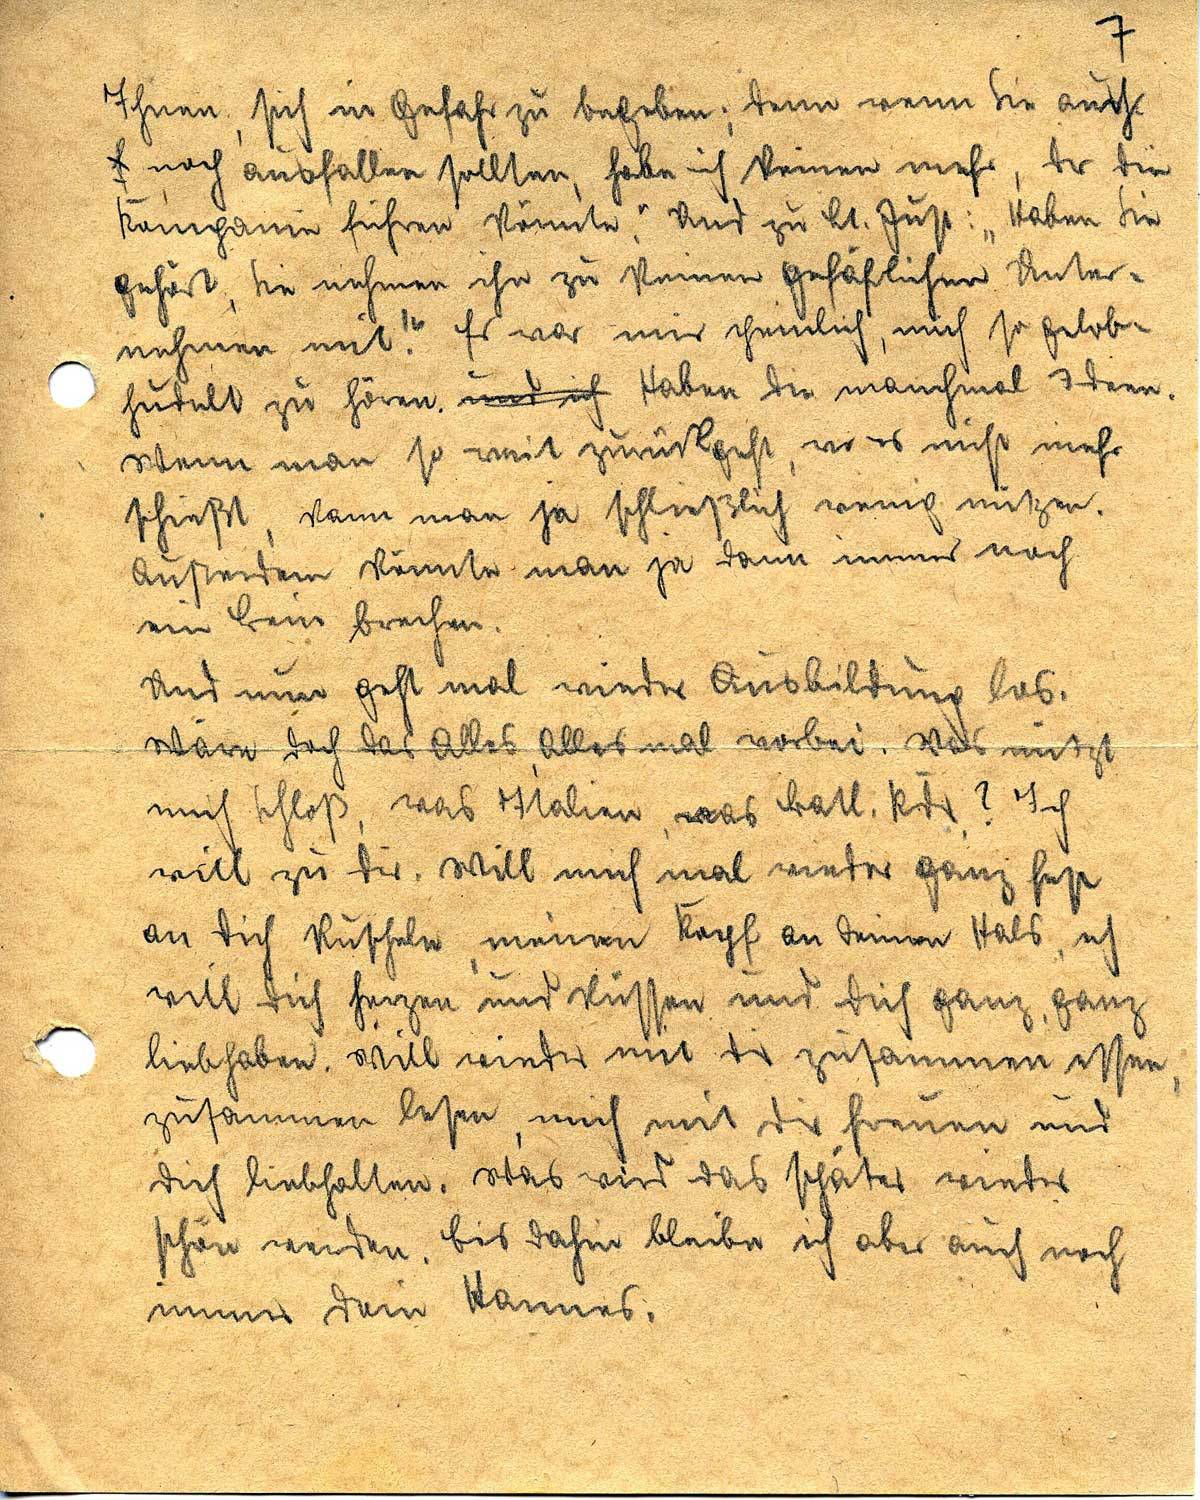 7
Ihnen, sich in Gefahr zu begeben; denn wenn Sie auch
noch ausfallen sollten, habe ich keinen mehr, der die
Kompanie führen könnte." Und zu Lt. Just: „Haben Sie
gehört, Sie nehmen ihn zu keinen gefährlichen Unter-
nehmen mit!" Es war mir peinlich, mich so gelob-
hudelt zu hören. und ich Haben die manchmal Ideen.
Wenn man so weit zurückgeht, wo es nicht mehr
schießt, kann man ja schließlich wenig nützen.
Außerdem könnte man ja dann immer noch
ein Bein brechen.
Und nun geht mal wieder Ausbildung los.
Wäre doch das Alles, Alles mal vorbei. Was nützt
mich Schloß, was Italien, was Batl. Kdr.? Ich
will zu dir. Will mich mal wieder ganz fest
an dich kuscheln, meinen Kopf an deinen Hals, ich
will dich herzen und küssen und dich ganz, ganz
liebhaben. Will wieder mit dir zusammen essen,
zusammen lesen, mich mit dir freuen und
dich liebhalten. Was wird das später wieder
schön werden. Bis dahin bleibe ich aber auch noch
immer dein Hannes.